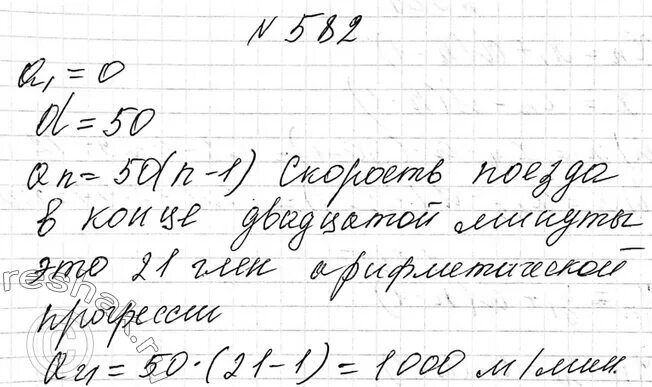 №582
a₁ = 0
d = 50
an = 50(n-1) Скорость поезда
в конце двадцатой минуты
это 21 член арифметической
прогрессии
a₂₁ = 50·(21-1) = 1000 м/мин.